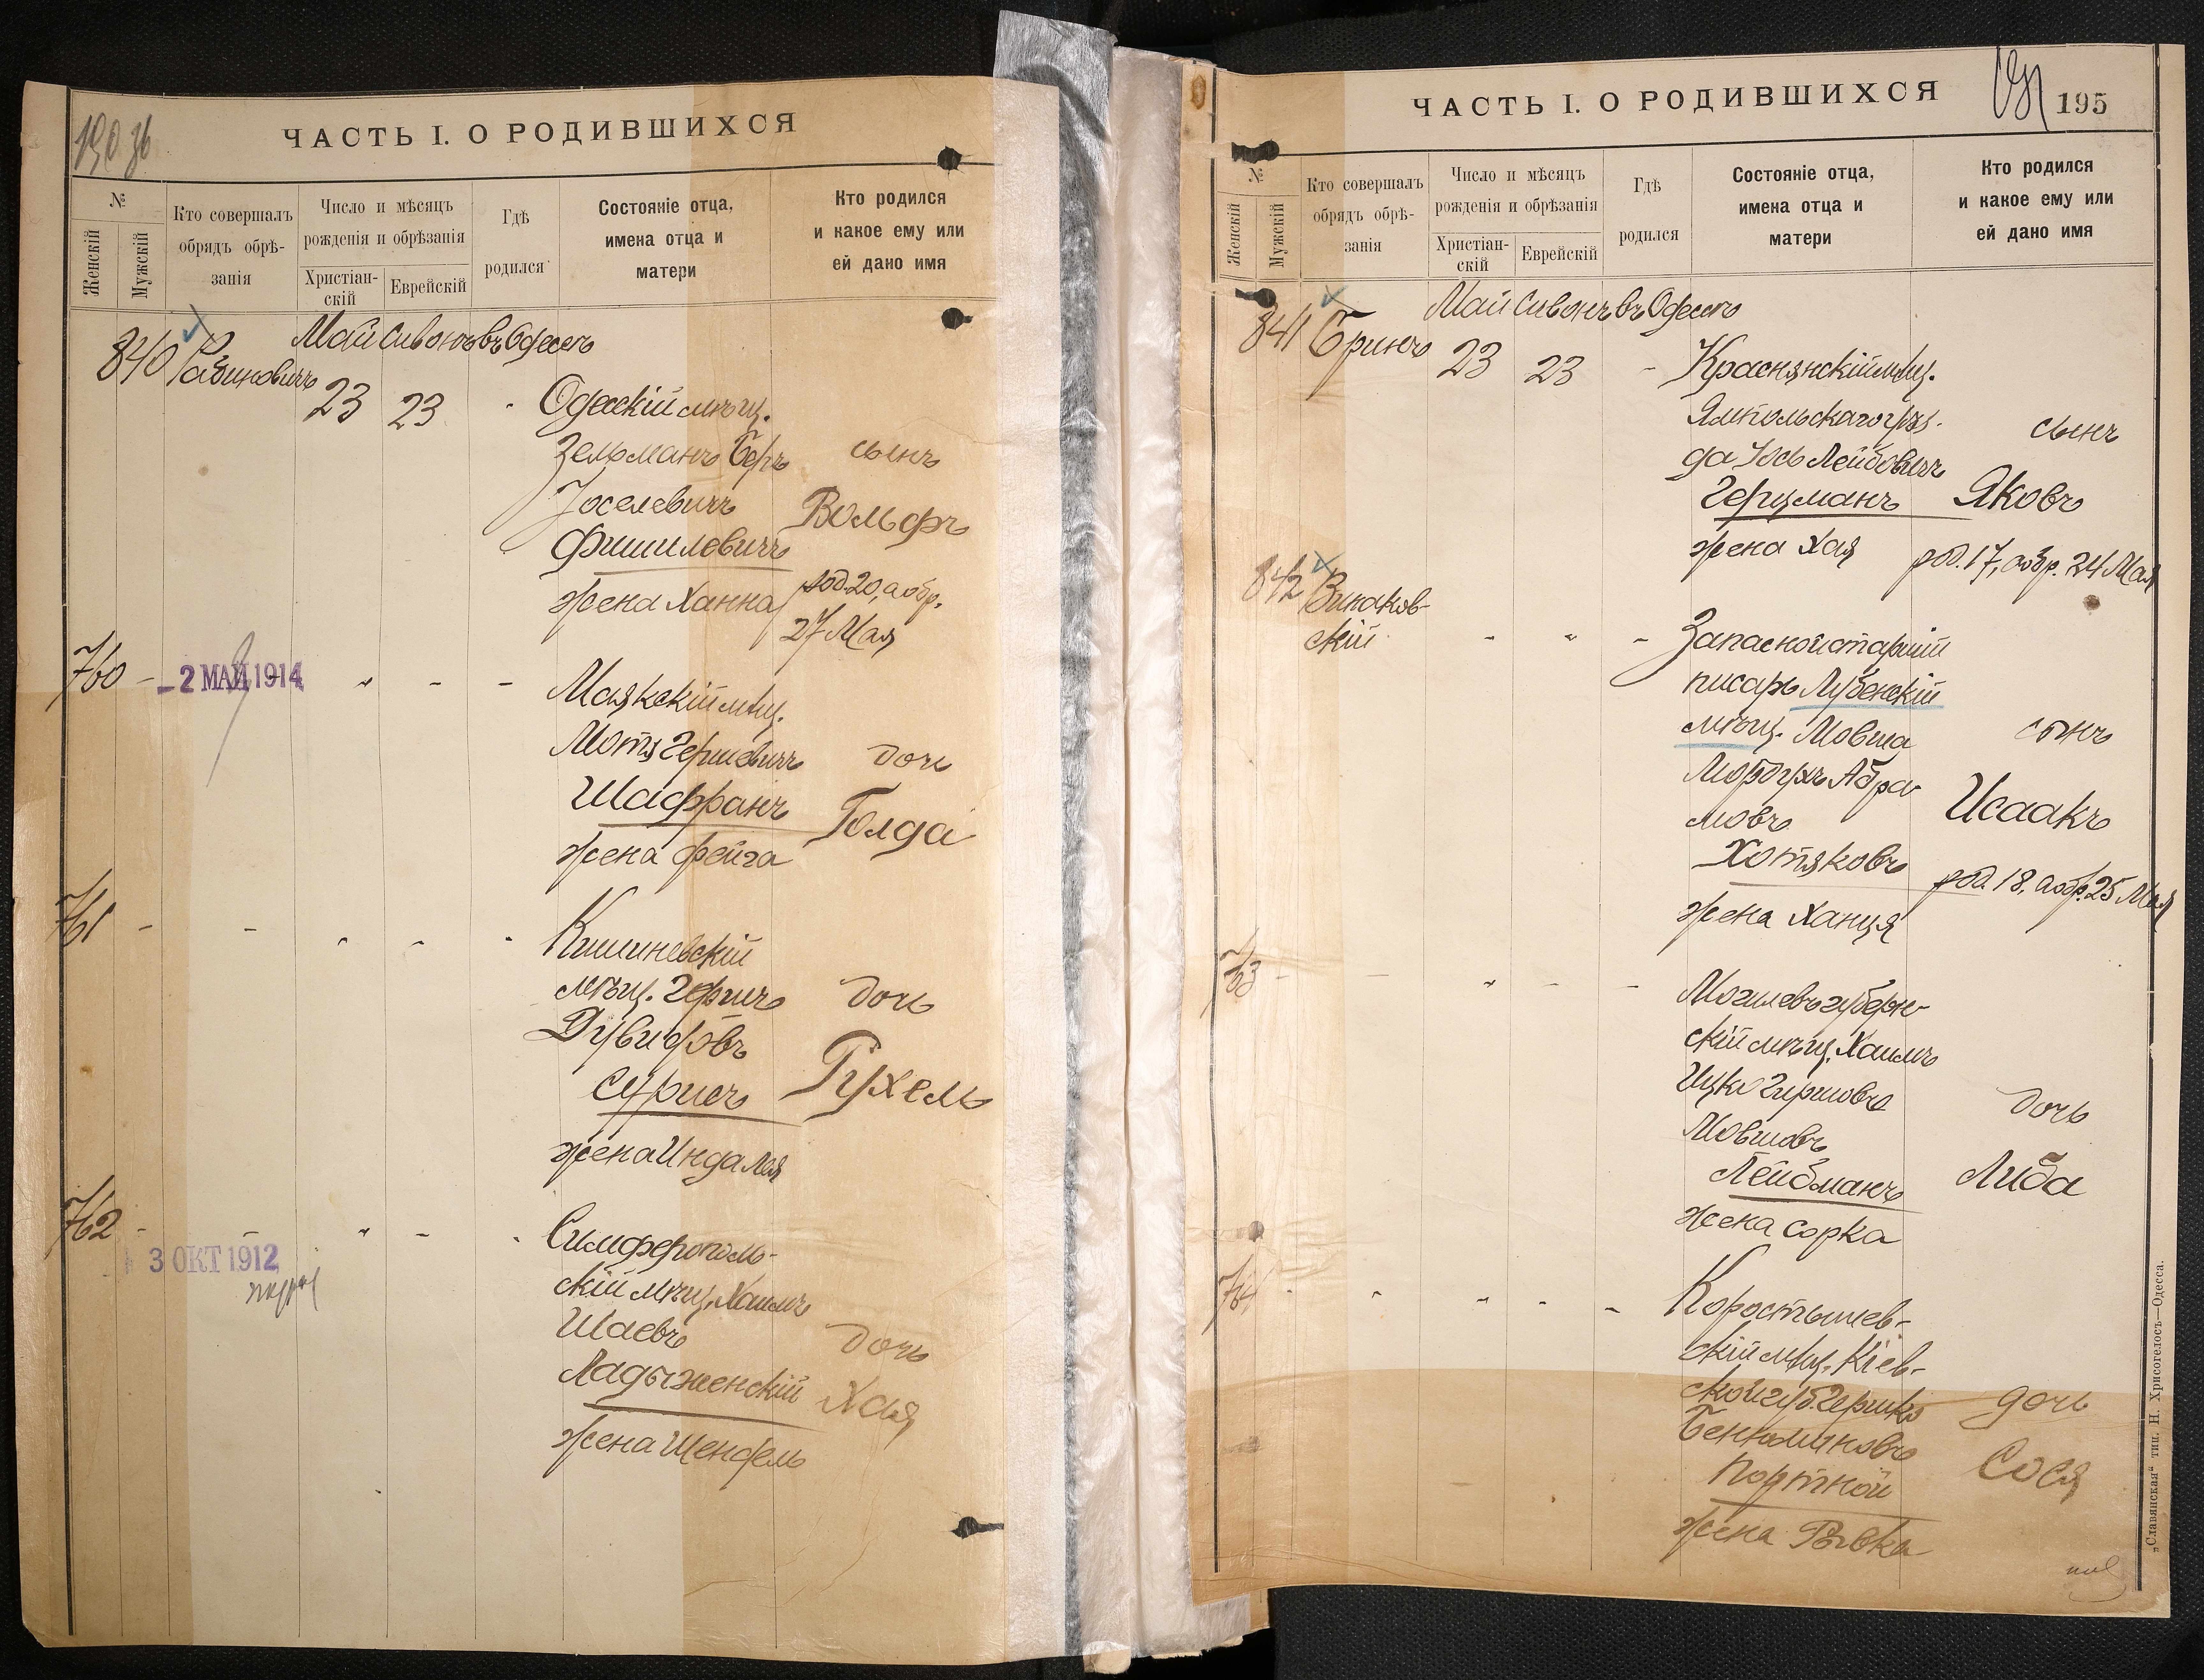 ЧАСТЬ I. О РОДИВШИХСЯ
№
Женскій
Мужскій
Кто совершалъ
обрядъ обрѣ-
занія
Число и мѣсяцъ
рожденія и обрѣзанія
Христіан-
скій
Еврейскій
Гдѣ
родился
Состояніе отца,
имена отца и
матери
Кто родился
и какое ему или
ей дано имя
Май Сивонъ въ Одессѣ
840 Рабиновичъ
23 23 Одесскій мѣщ.
Зельманъ Беръ сынъ
Іоселевичъ Вольфъ
Фишилевичъ
жена Ханна род. 20, а обр.
27 Мая
760 - - 2 МАЙ 1914 " - - Маякскій мѣщ.
Мотя Гершевичъ дочь
Шафранъ Голда
жена Фейга
761 - - Кишиневскій
мѣщ. Гершъ дочь
Дувидовъ
Сурисъ Рухель
жена Индалея
762 - - " - Симферополь-
3 ОКТ 1912
скій мѣщ. Хаимъ
Шаевъ дочь
Ладыженскій Хая
жена Шендель
ЧАСТЬ I. О РОДИВШИХСЯ
195
№
Женскій
Мужскій
Кто совершалъ
обрядъ обрѣ-
занія
Число и мѣсяцъ
рожденія и обрѣзанія
Христіан-
скій
Еврейскій
Гдѣ
родился
Состояніе отца,
имена отца и
матери
Кто родился
и какое ему или
ей дано имя
Май Сивонъ въ Одессѣ
841 Бринъ 23 23 - Краснянскій мѣщ.
Ямпольскаго уѣз-
да Іось Лейбовичъ сынъ
Герцманъ Яковъ
жена Хая род. 17, а обр. 24 Мая
842 Винаков-
скій - " - Запасной старшій
писарь Лубенскій
мѣщ. Мовша сынъ
Мордухъ Абра-
мовъ Исаакъ
Хотяковъ
род. 18, а обр. 25 Мая
жена Ханця
763 - - " - - Могилевъ губерн-
скій мѣщ. Хаимъ
Ицко Гиршовъ
Мовшовъ дочь
Лейбманъ Либа
жена Сорка
764 - " " - - Коростышев-
скій мѣщ. Кіев-
ской губ. Гершко дочь
Беньяминовъ
Портной Сося
жена Рывка
„Славянская“ тип. Н. Хрисогелосъ—Одесса.